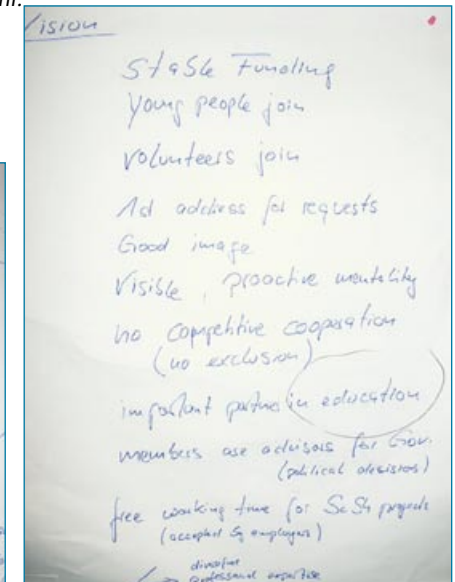 Vision
Stable Funding
Young people join
Volunteers join
1st address for requests
Good image
Visible, proactive mentality
no competitive cooperation
(no exclusion)
important partner in education
members are advisors for Gov.
(political decisions)
free working time for projects
(accepted by employers)
professional expertise